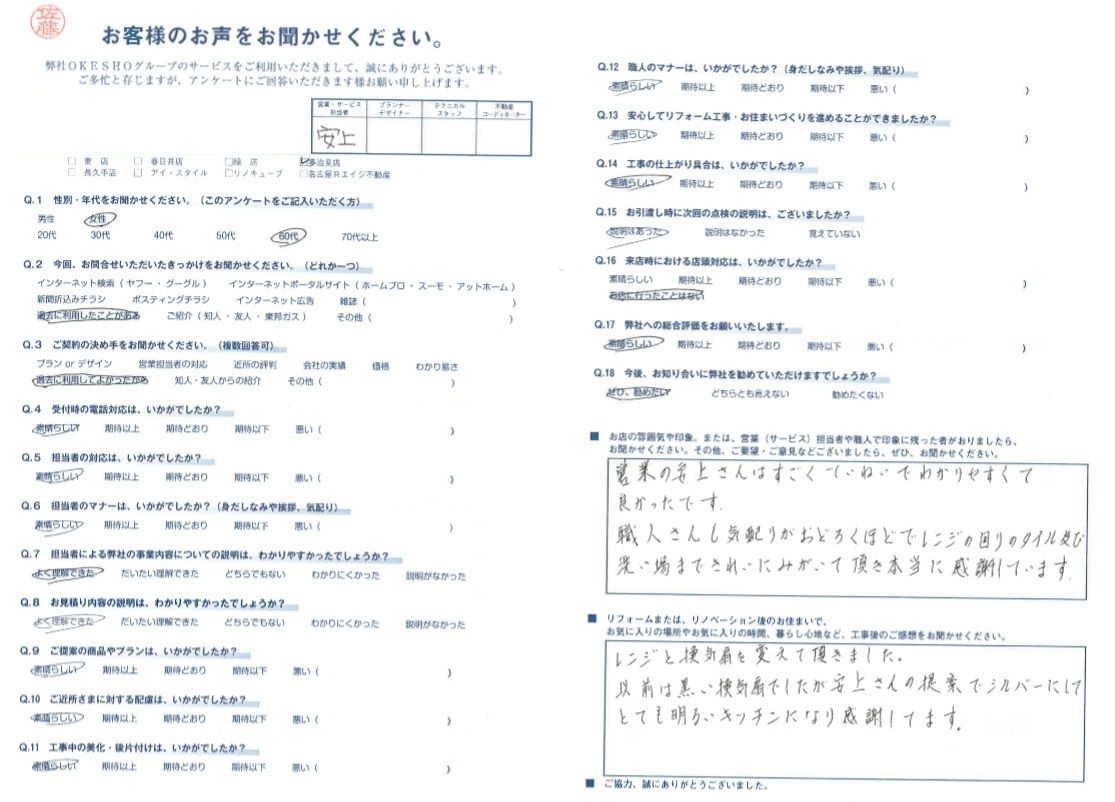 佐藤
お客様のお声をお聞かせください。
弊社OKESHOグループのサービスをご利用いただきまして、誠にありがとうございます。
ご多忙と存じますが、アンケートにご回答いただきます様お願い申し上げます。
営業・サービス担当者 プランナーデザイナー テクニカルスタッフ 不動産コーディネーター
安上
□ 東 店 □ 春日井店 □緑 店 ☑多治見店
□ 長久手店 □ アイ・スタイル □リノキューブ □名古屋Rエイジ不動産
Q.1 性別・年代をお聞かせください。(このアンケートをご記入いただく方)
男性 女性
20代 30代 40代 50代 60代 70代以上
Q.2 今回、お問合せいただいたきっかけをお聞かせください。(どれか一つ)
インターネット検索(ヤフー・グーグル) インターネットポータルサイト(ホームプロ・スーモ・アットホーム)
新聞折込みチラシ ポスティングチラシ インターネット広告 雑誌( )
過去に利用したことがある ご紹介(知人・友人・東邦ガス) その他( )
Q.3 ご契約の決め手をお聞かせください。(複数回答可)
プラン or デザイン 営業担当者の対応 近所の評判 会社の実績 価格 わかり易さ
過去に利用してよかったから 知人・友人からの紹介 その他( )
Q.4 受付時の電話対応は、いかがでしたか?
素晴らしい 期待以上 期待どおり 期待以下 悪い( )
Q.5 担当者の対応は、いかがでしたか?
素晴らしい 期待以上 期待どおり 期待以下 悪い( )
Q.6 担当者のマナーは、いかがでしたか?(身だしなみや挨拶、気配り)
素晴らしい 期待以上 期待どおり 期待以下 悪い( )
Q.7 担当者による弊社の事業内容についての説明は、わかりやすかったでしょうか?
よく理解できた だいたい理解できた どちらでもない わかりにくかった 説明がなかった
Q.8 お見積り内容の説明は、わかりやすかったでしょうか?
よく理解できた だいたい理解できた どちらでもない わかりにくかった 説明がなかった
Q.9 ご提案の商品やプランは、いかがでしたか?
素晴らしい 期待以上 期待どおり 期待以下 悪い( )
Q.10 ご近所さまに対する配慮は、いかがでしたか?
素晴らしい 期待以上 期待どおり 期待以下 悪い( )
Q.11 工事中の美化・後片付けは、いかがでしたか?
素晴らしい 期待以上 期待どおり 期待以下 悪い( )
Q.12 職人のマナーは、いかがでしたか?(身だしなみや挨拶、気配り)
素晴らしい 期待以上 期待どおり 期待以下 悪い( )
Q.13 安心してリフォーム工事・お住まいづくりを進めることができましたか?
素晴らしい 期待以上 期待どおり 期待以下 悪い( )
Q.14 工事の仕上がり具合は、いかがでしたか?
素晴らしい 期待以上 期待どおり 期待以下 悪い( )
Q.15 お引渡し時に次回の点検の説明は、ございましたか?
説明はあった 説明はなかった 覚えていない
Q.16 来店時における店頭対応は、いかがでしたか?
素晴らしい 期待以上 期待どおり 期待以下 悪い( )
お店に行ったことはない
Q.17 弊社への総合評価をお願いいたします。
素晴らしい 期待以上 期待どおり 期待以下 悪い( )
Q.18 今後、お知り合いに弊社を勧めていただけますでしょうか?
ぜひ、勧めたい どちらとも言えない 勧めたくない
■ お店の雰囲気や印象。または、営業(サービス)担当者や職人で印象に残った者がおりましたら、
お聞かせください。その他、ご要望・ご意見などございましたら、ぜひ、お聞かせください。
営業の安上さんはすごくていねいでわかりやすくて
良かったです.
職人さんも気配りがおどろくほどでレンジの回りのタイル及び
洗い場まできれいにみがいて頂き本当に感謝しています.
■ リフォームまたは、リノベーション後のお住まいで、
お気に入りの場所やお気に入りの時間、暮らし心地など、工事後のご感想をお聞かせください。
レンジと換気扇を変えて頂きました。
以前は黒い換気扇でしたが安上さんの提案でシルバーにして
とても明るいキッチンになり感謝してます。
■ ご協力、誠にありがとうございました。